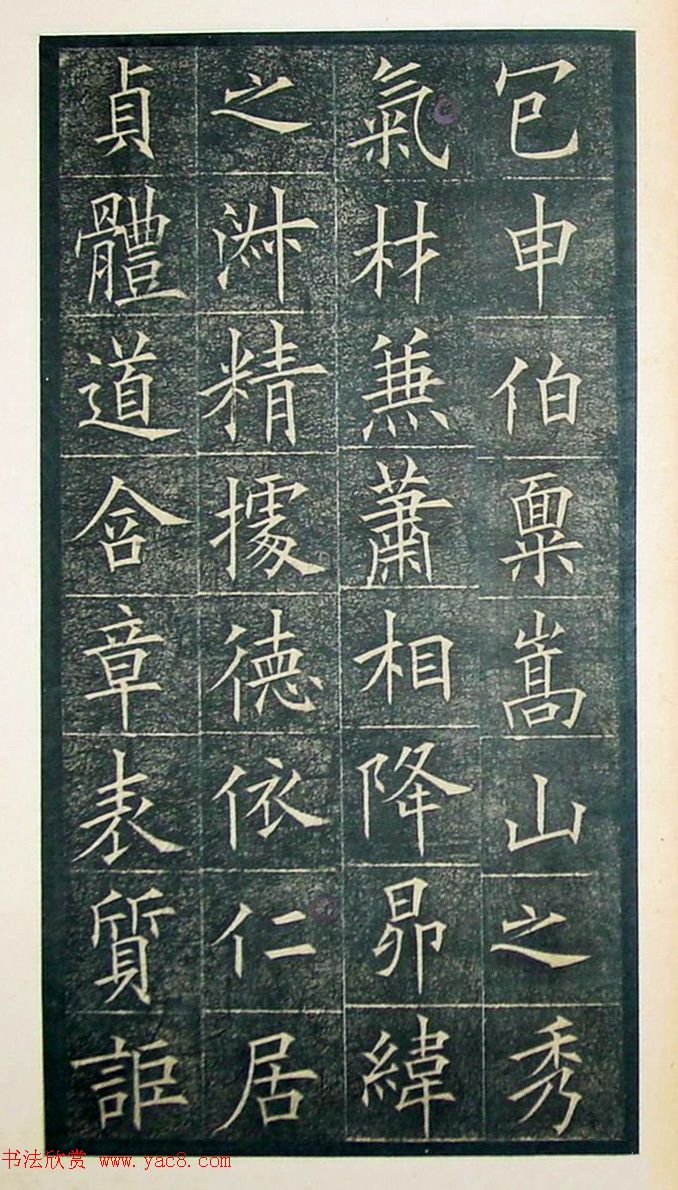 包申伯稟嵩山之秀
氣材兼蕭相降昴緯
之淑精據德依仁居
貞體道含章表質詎
书法欣赏 www.yac8.com